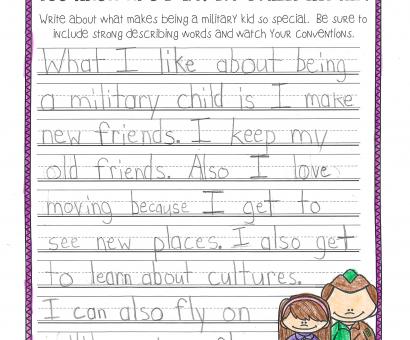 Write about what makes being a military kid so special. Be sure to
include strong describing words and watch your conventions.
What I like about being
a military child is I make
new friends. I keep my
old friends. Also I love
moving because I get to
see new places. I also get
to learn about cultures.
I can also fly on